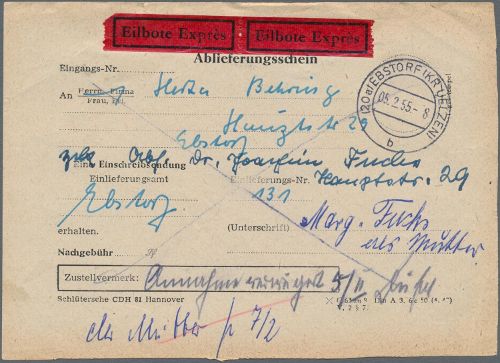 Eilbote Exprès Eilbote Exprès
Ablieferungsschein
Eingangs-Nr.
An Herrn, Firma
Frau, Frl.
Herta Behring
Hauptstr 29
Ebstorf
(20a) EBSTORF (KR UELZEN)
05.2.55-8
b
Abs. Dr. Joachim Fuchs
Eine Einschreibsendung
Hauptstr. 29
Einlieferungsamt Einlieferungs-Nr.
Ebstorf 131
Marg. Fuchs
als Mutter
erhalten. (Unterschrift)
Nachgebühr
Zustellvermerk: Annahme verweigert 5/II
Schlütersche CDH 81 Hannover
die Mutter 7/2